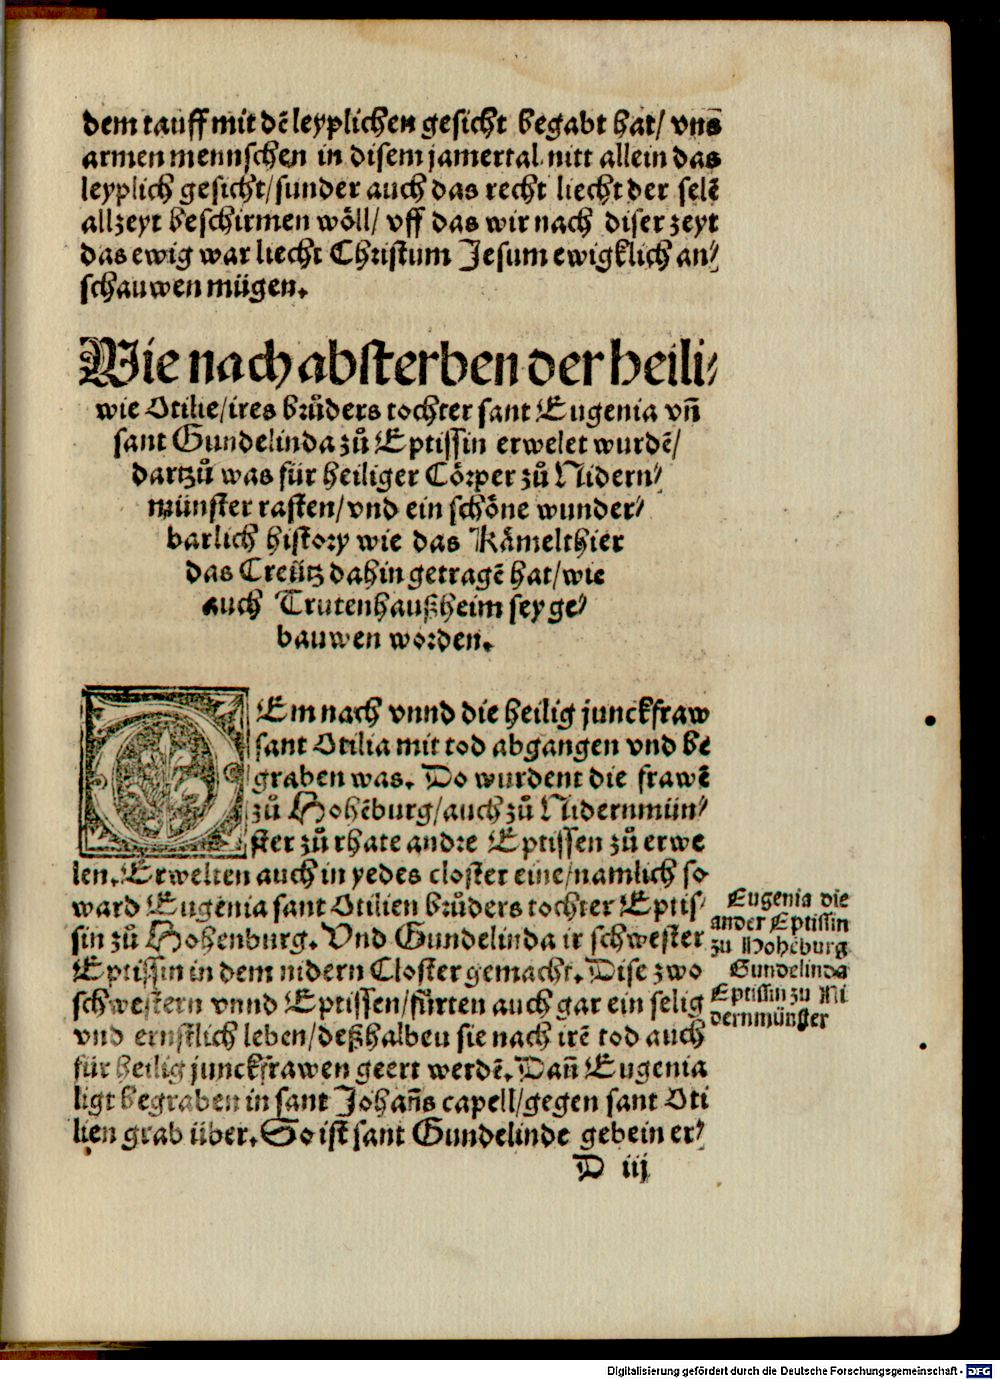 dem tauff mit dē leyplichen gesicht begabt hat/ vnns̄
armen mennschen in disem jamertal nitt allein das
leyplich gesicht/sunder auch das recht liecht der selē
allzeyt beschirmen wöll/ vff das wir nach diser zeyt
das ewig war liecht Christum Jesum ewigklich an⸗
schauwen mügen.
Wie nach absterben der heili⸗
wie Otilie/ires brůders tochter sant Eugenia vn̄
sant Gundelinda zů Eptissin erwelet wurdē/
dartzů was für heiliger Cörper zů Nidern⸗
münster rasten/vnd ein schöne wunder⸗
barlich history wie das Kämelthier
das Creütz dahin getragē hat/wie
auch Trutenhaußheim sey ge⸗
bauwen worden.
DEm nach vnnd die heilig junckfraw
sant Otilia mit tod abgangen vnd be
graben was. Do wurdent die frawē
zů Hohēburg/auch zů Nidernmün⸗
ster zů rhate andre Eptissen zů erwe
len. Erwelten auch in yedes closter eine/namlich so
ward Eugenia sant Otilien brůders tochter Eptis⸗
sin zů Hohenburg. Vnd Gundelinda ir schwester
Eptissin in dem nidern Closter gemacht. Dise zwo
schwestern vnnd Eptissen/fürten auch gar ein selig
vnd ernstlich leben/deßhalben sie nach irē tod auch
für heilig junckfrawen geert werdē. Dan̄ Eugenia
ligt begraben in sant Johan̄s capell/gegen sant Oti
lien grab über. So ist sant Gundelinde gebein er⸗
D iij
Eugenia die
ander Eptissin
zu Hohēburg
Gundelinda
Eptissin zu Ni
dernmünster
Digitalisierung gefördert durch die Deutsche Forschungsgemeinschaft - DFG